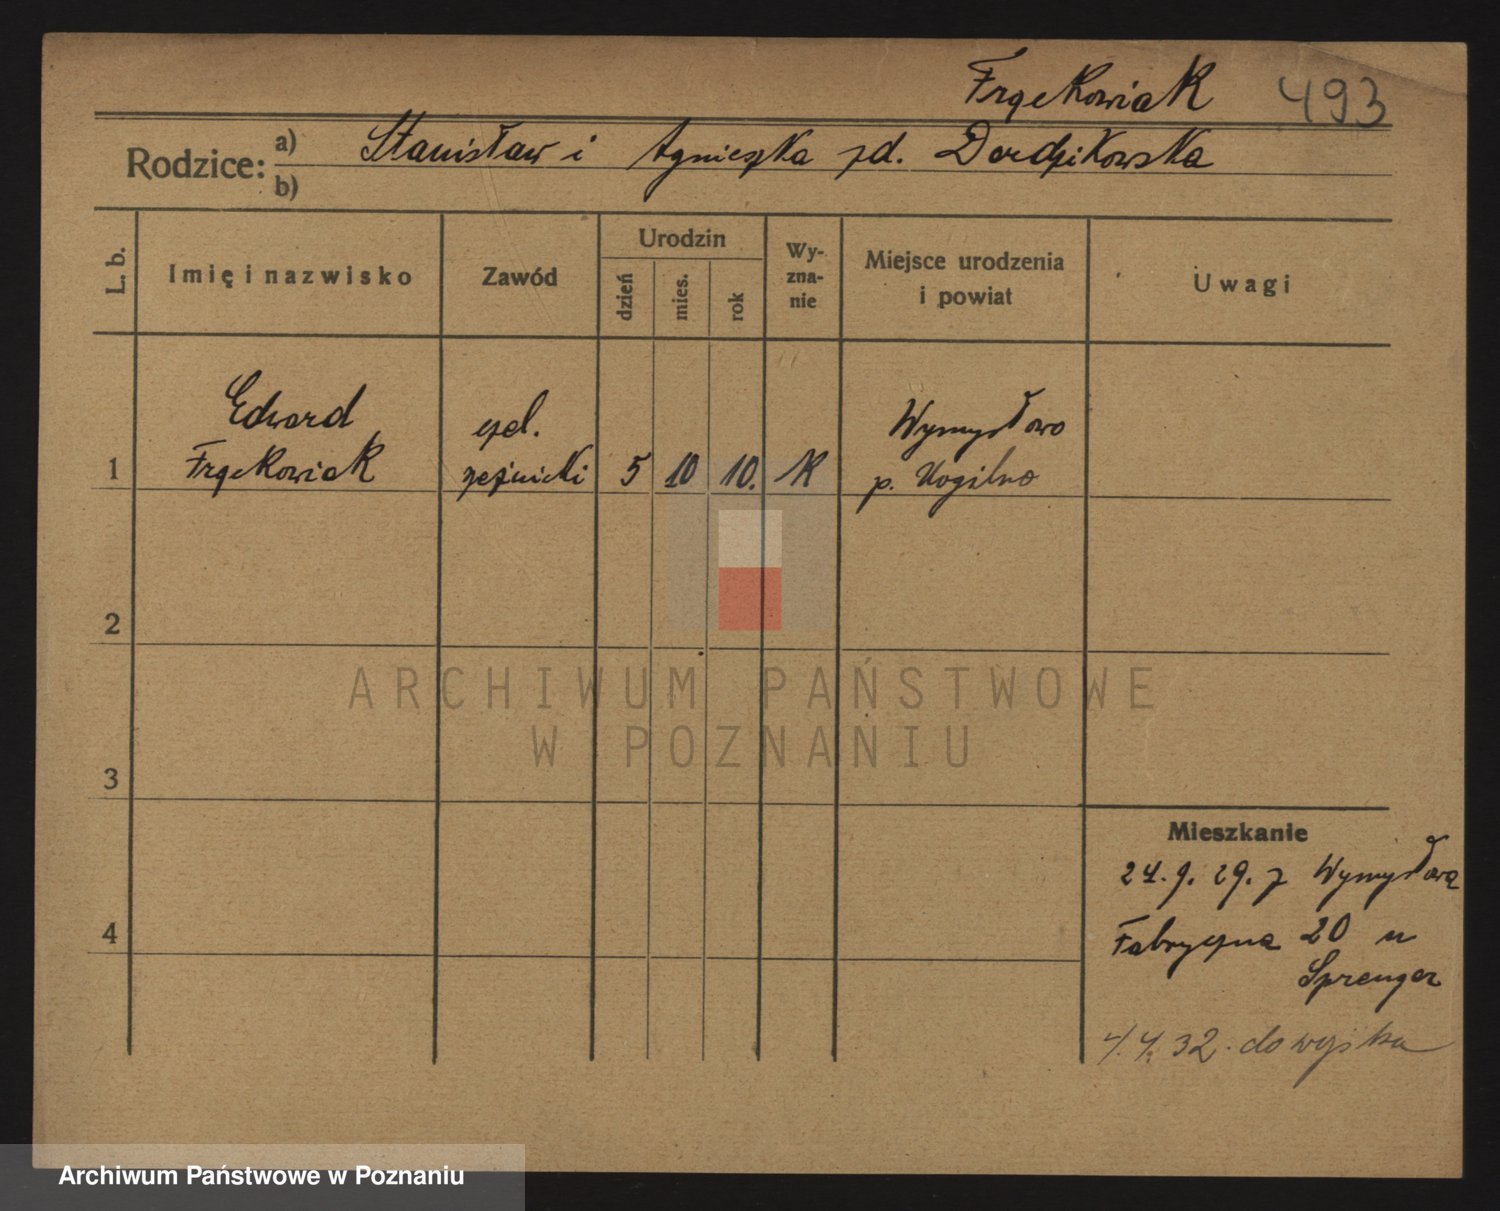 Frąckowiak 493
Rodzice: a) Stanisław i Agnieszka zd. Dardzikowska
b)
L. b. Imię i nazwisko Zawód Urodzin dzień mies. rok Wy-zna-nie Miejsce urodzenia i powiat Uwagi
Edward czel. Wymysłowo
1 Frąckowiak rzeźnicki 5 10 10. K p. Mogilno
2
ARCHIWUM PAŃSTWOWE
W POZNANIU
3
Mieszkanie
24. 9. 29. z Wymysłowa
4
Fabryczna 20 u
Sprenger
4. 4. 32. do wojska
Archiwum Państwowe w Poznaniu